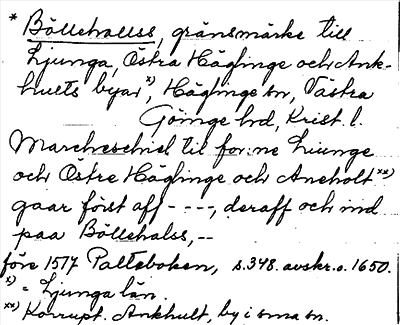 * Böllehallss, gränsmärke till
Ljunga, Östra Häglinge och Ank-
hults byar x), Häglinge sn, Västra
Göinge hd, Krist. l.
Marcheschiel til for:ne Liunge
och Östre Häglinge och Aneholt xx)
gaar först aff - - - -, deraff och ind
paa Böllehalss, --
före 1517 Palteboken, s. 348. avskr. o. 1650.
x) = Ljunga län.
xx) Korrupt. Ankhult, by i sma sn.